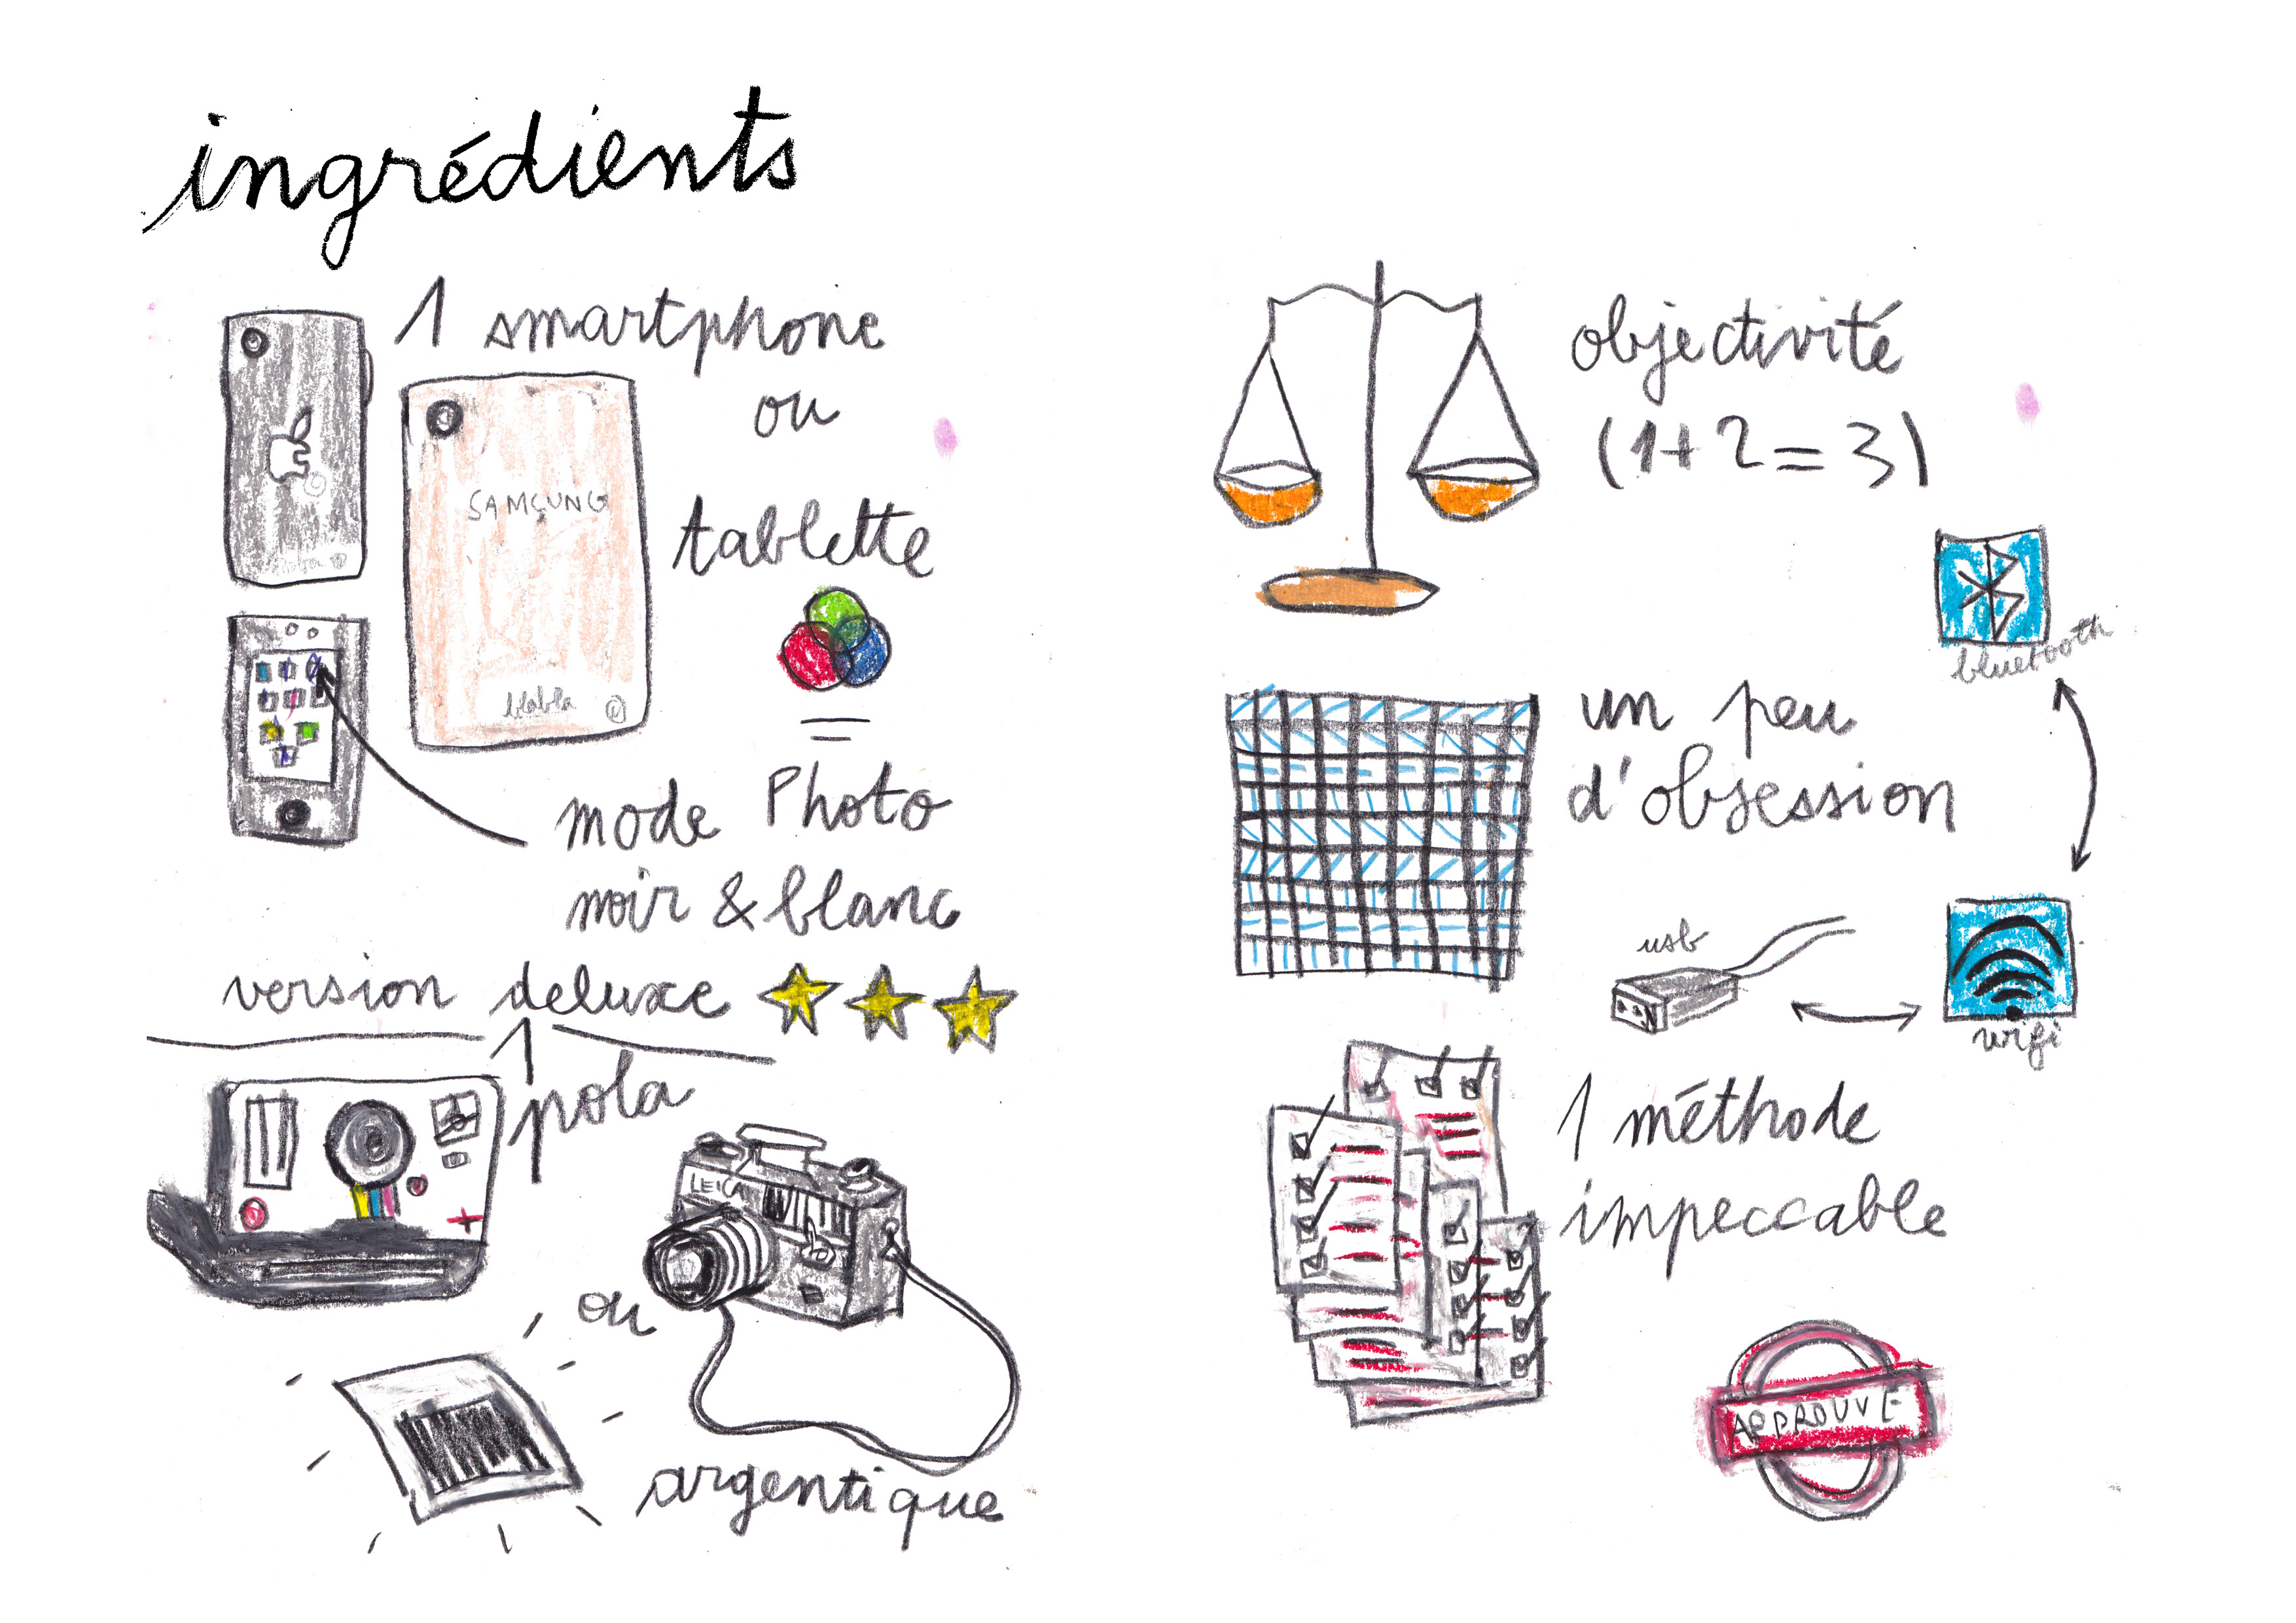 ingrédients
1 smartphone
ou
tablette
SAMSUNG
blabla
=
mode Photo
noir & blanc
version deluxe
1 pola
LEICA
ou
argentique
objectivité
(1+2=3)
bluetooth
un peu
d'obsession
usb
wifi
1 méthode
impeccable
APPROUVÉ